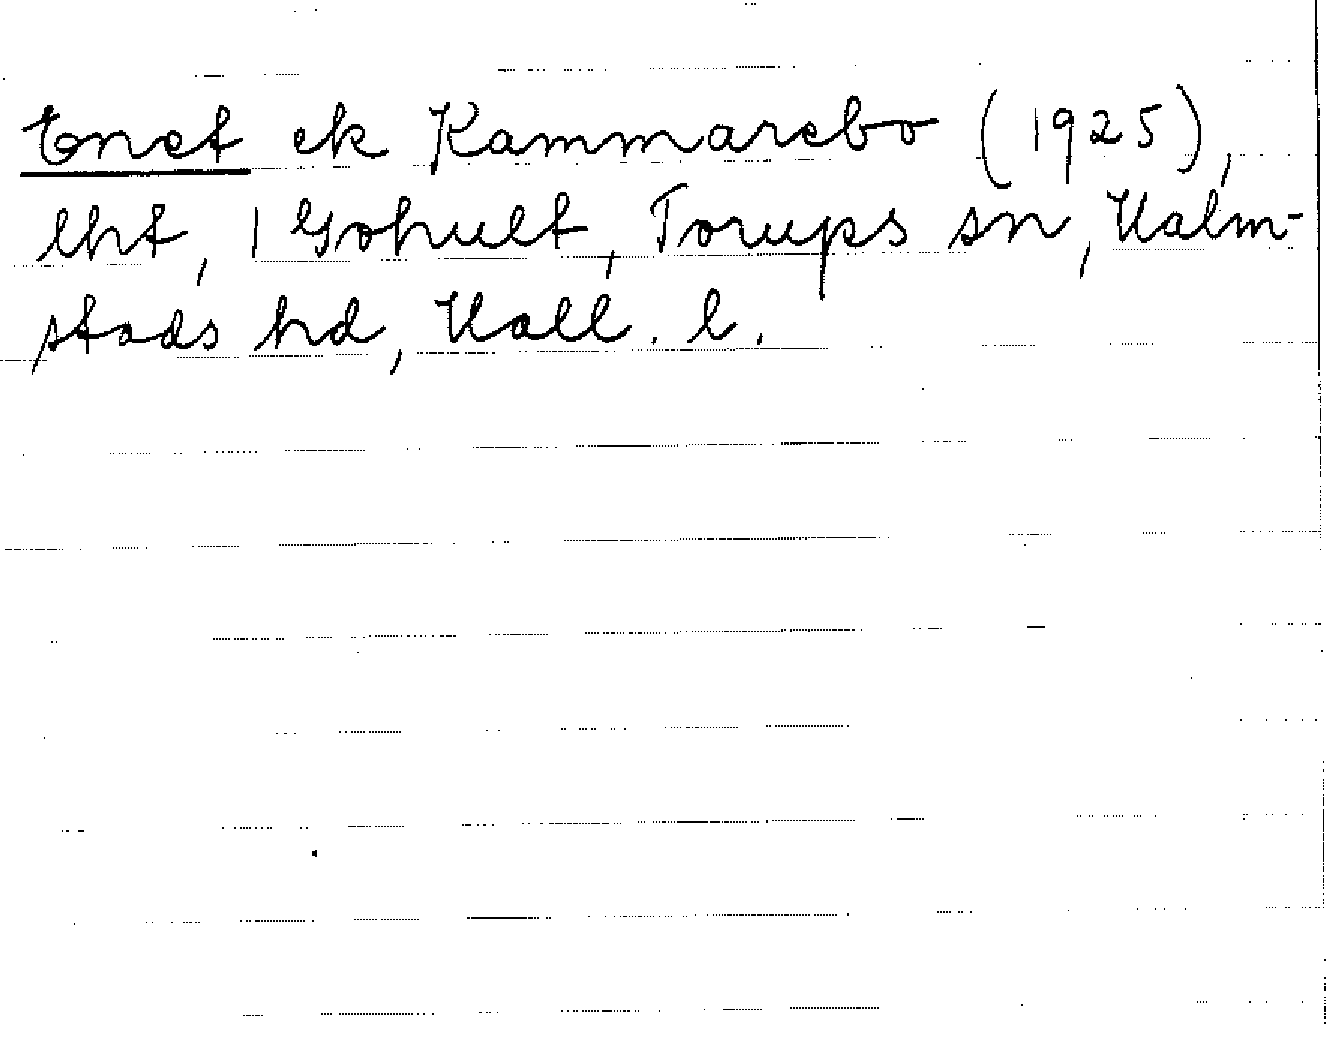 Enet ek Kammarebo (1925),
lht, 1 Gohult, Torups sn, Halm-
stads hd, Hall. l.